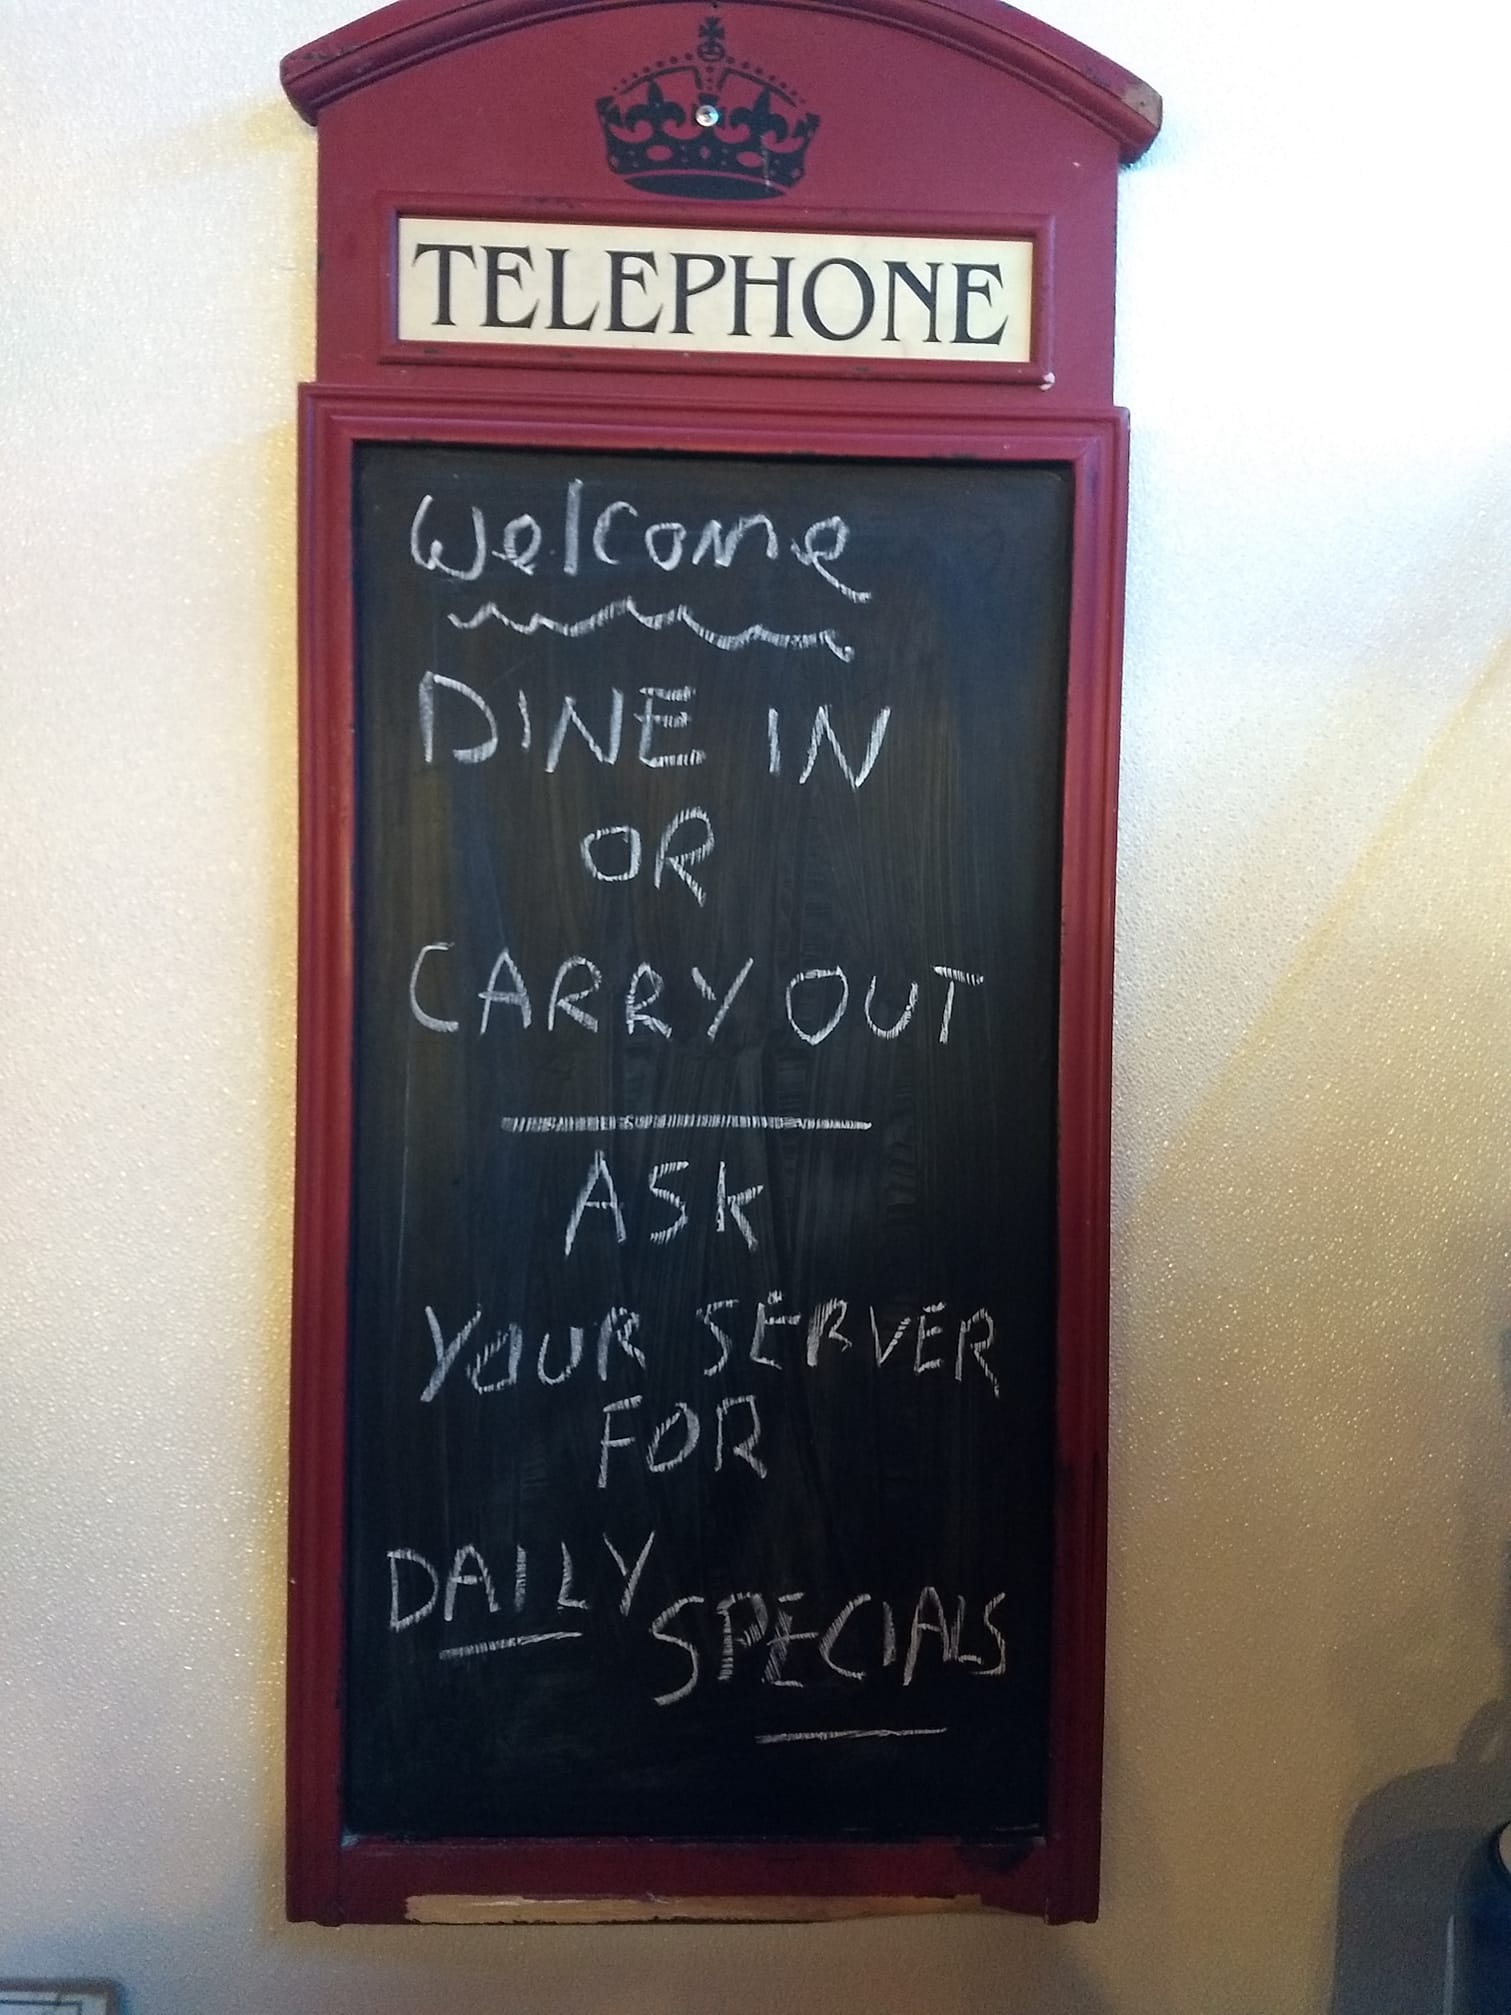 TELEPHONE
Welcome
DINE IN
OR
CARRY OUT
ASk
YOUR SERVER
FOR
DAILY SPECIALS